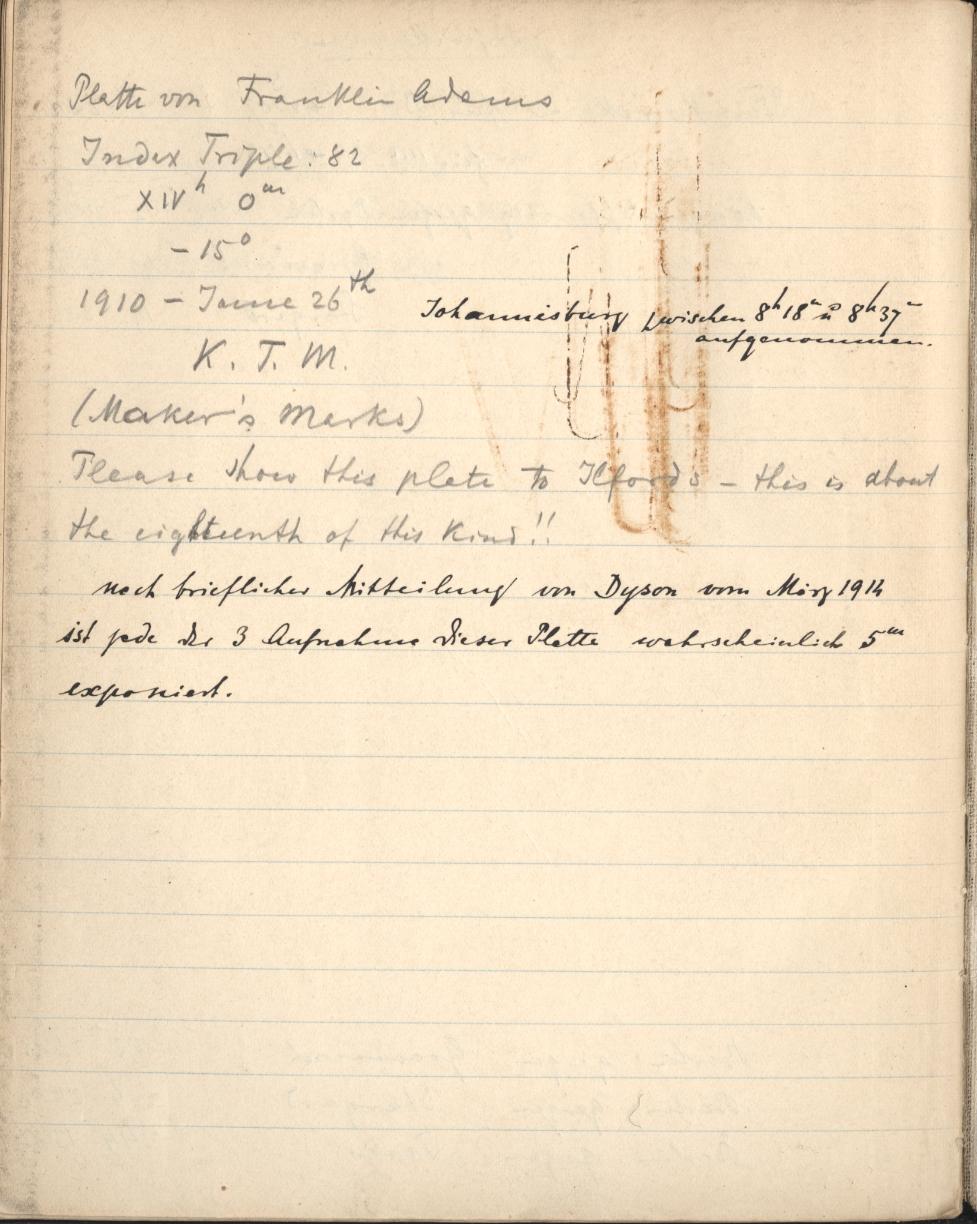 Platte von Franklin Adams
Index Triple: 82
XIVʰ 0ᵐ
- 15⁰
1910 - June 26ᵗʰ
Johannisburg zwischen 8ʰ18ᵐ u 8ʰ37ᵐ
aufgenommen.
K. T. M.
(Maker's Marks)
Please show this plate to Ilfords - this is about
the eighteenth of this kind!!
nach brieflicher Mitteilung von Dyson vom März 1914
ist jede der 3 Aufnahme dieser Platte wahrscheinlich 5ᵐ
exponiert.